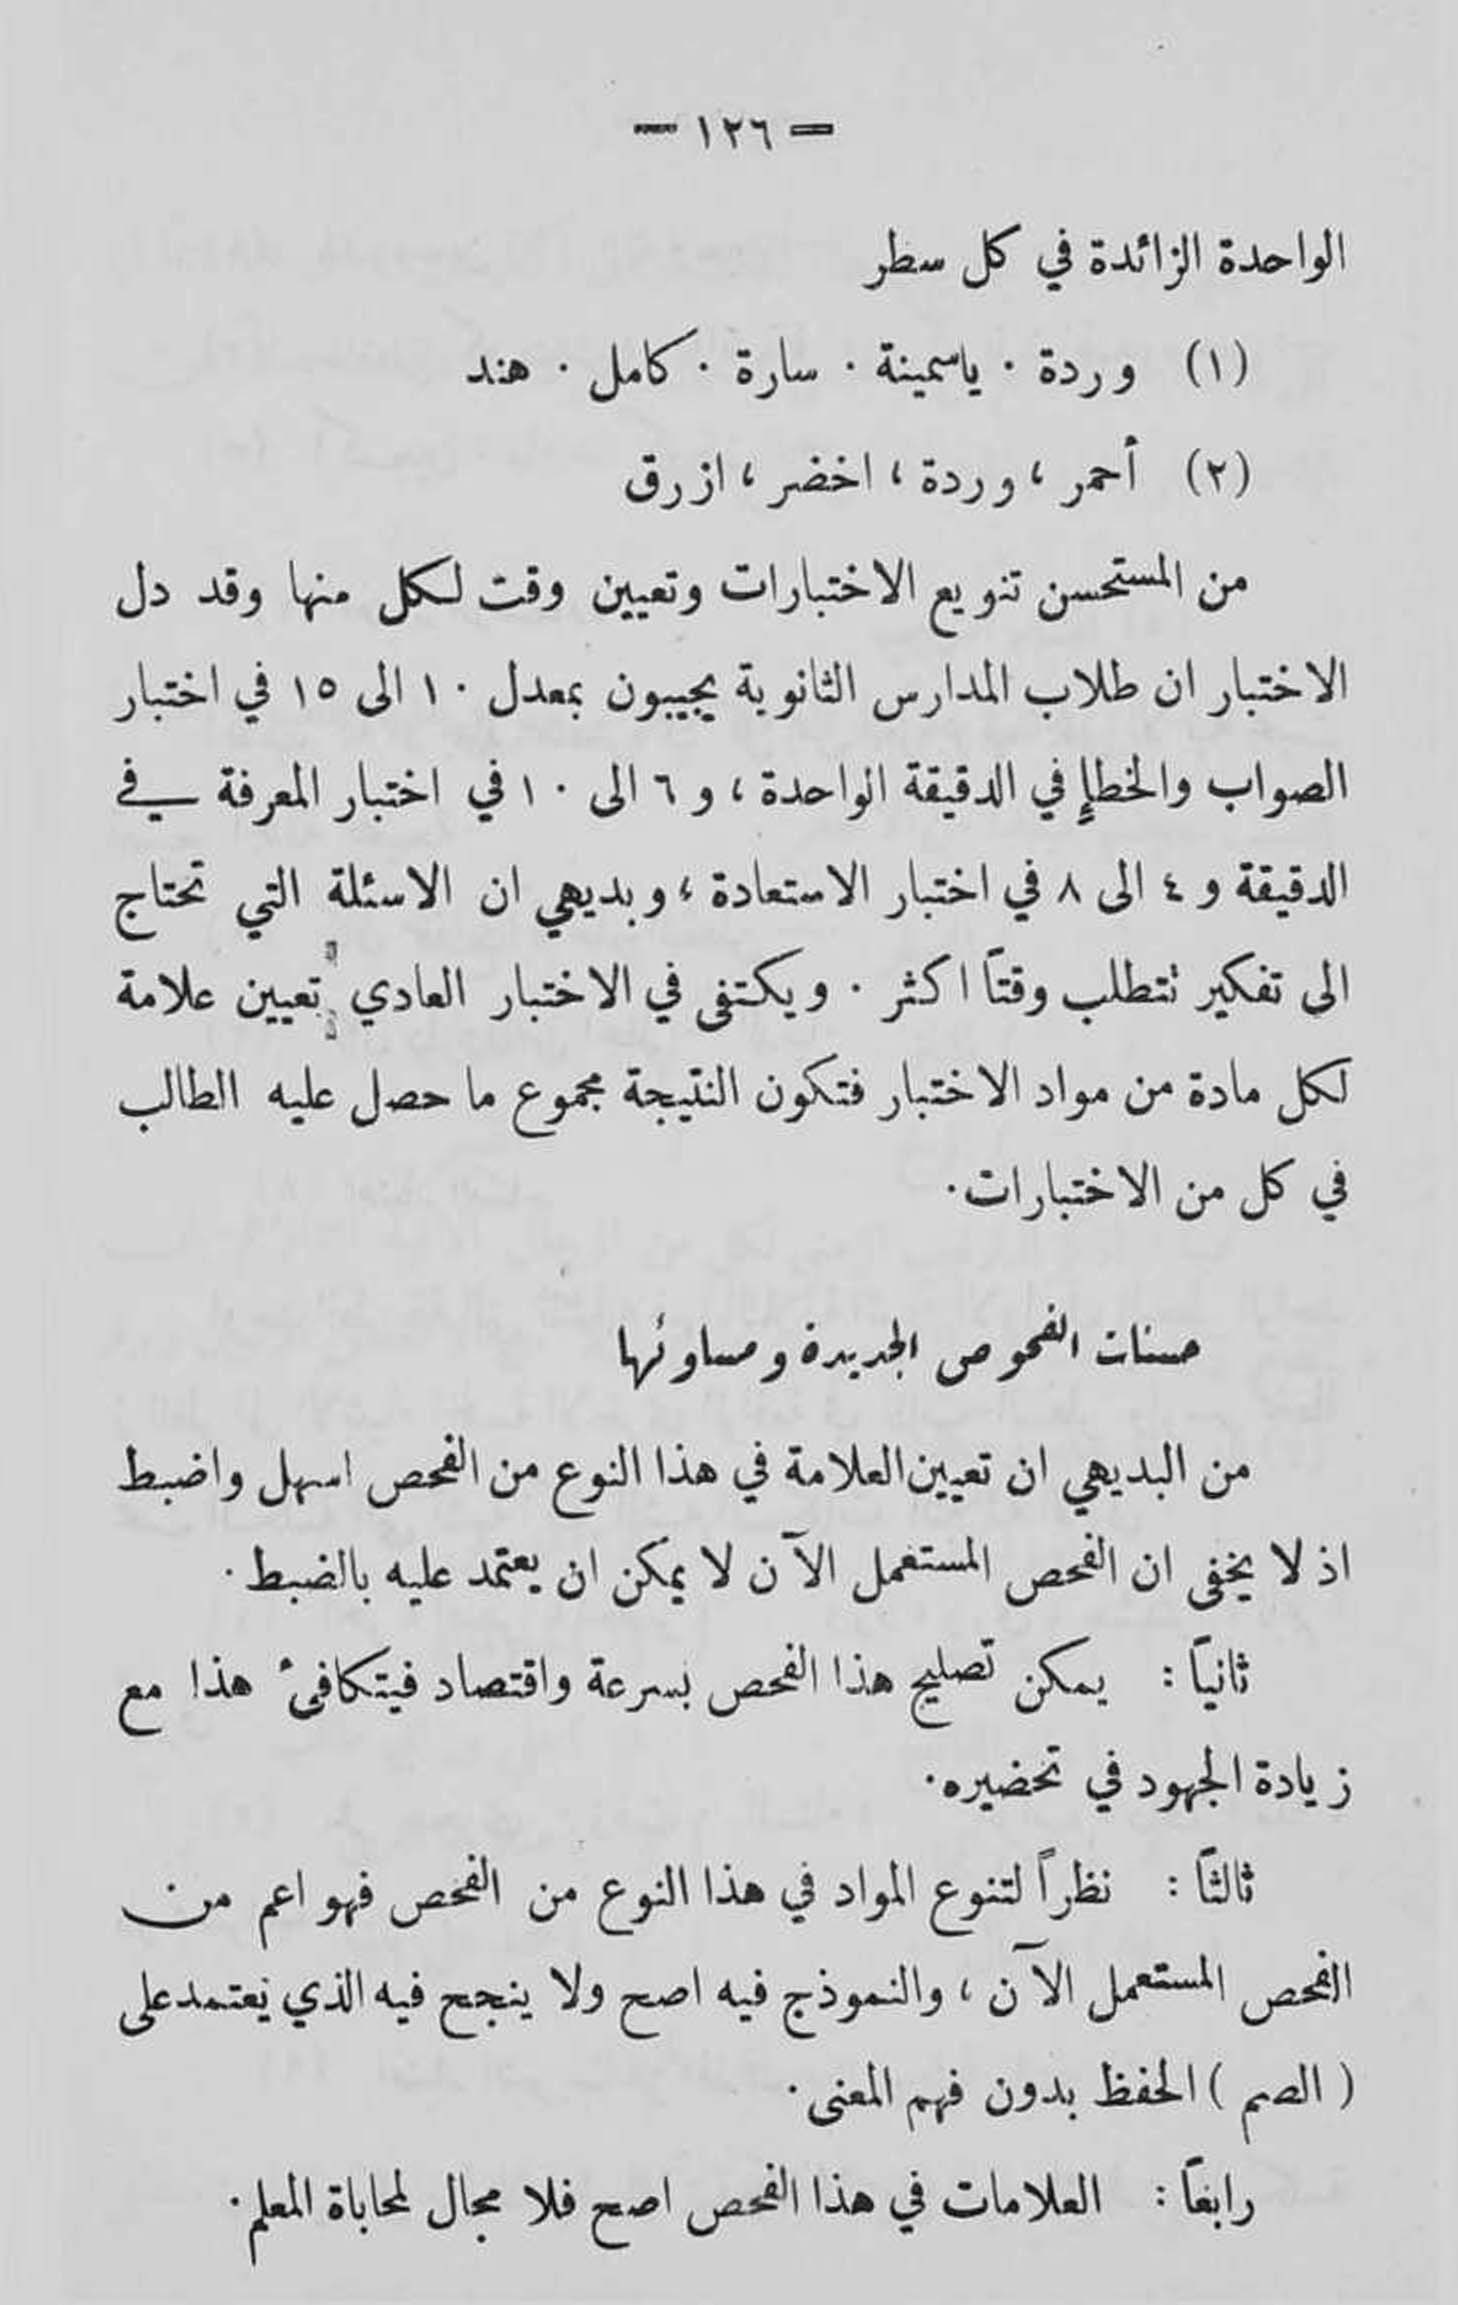 — ١٢٦ —
الواحدة الزائدة في كل سطر
(١) وردة . ياسمينة . سارة . كامل . هند
(٢) أحمر ، وردة ، اخضر ، ازرق
من المستحسن تنويع الاختبارات وتعيين وقت لكل منها وقد دل
الاختبار ان طلاب المدارس الثانوية يجيبون بمعدل ١٠ الى ١٥ في اختبار
الصواب والخطإِ في الدقيقة الواحدة ، و ٦ الى ١٠ في اختبار المعرفة في
الدقيقة و ٤ الى ٨ في اختبار الاستعادة ، وبديهي ان الاسئلة التي تحتاج
الى تفكير تتطلب وقتاً اكثر . ويكتفى في الاختبار العادي تعيين علامة
لكل مادة من مواد الاختبار فتكون النتيجة مجموع ما حصل عليه الطالب
في كل من الاختبارات .
حسنات الفحوص الجديدة ومساوئها
من البديهي ان تعيين العلامة في هذا النوع من الفحص اسهل واضبط
اذ لا يخفى ان الفحص المستعمل الآن لا يمكن ان يعتمد عليه بالضبط .
ثانياً : يمكن تصليح هذا الفحص بسرعة واقتصاد فيتكافئ هذا مع
زيادة الجهود في تحضيره .
ثالثاً : نظراً لتنوع المواد في هذا النوع من الفحص فهو اعم من
الفحص المستعمل الآن ، والنموذج فيه اصح ولا ينجح فيه الذي يعتمد على
( الصم ) الحفظ بدون فهم المعنى .
رابعاً : العلامات في هذا الفحص اصح فلا مجال لمحاباة المعلم .